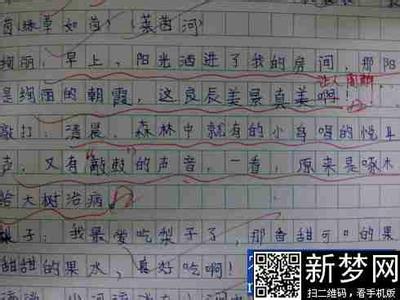 茵绿草如茵）（莱茵河）
绚丽：早上，阳光洒进了我的房间，那阳
让人陶醉
是绚丽的朝霞，这良辰美景真美啊！
敲打：清晨，森林中就有的小鸟唱的悦耳
声，又有“敲鼓”的声音，一看，原来是啄木
给大树治病。
梨子：我最爱吃梨子了，那香甜可口的果
甜甜的果水，真好吃啊！
新梦网
扫二维码，看手机版